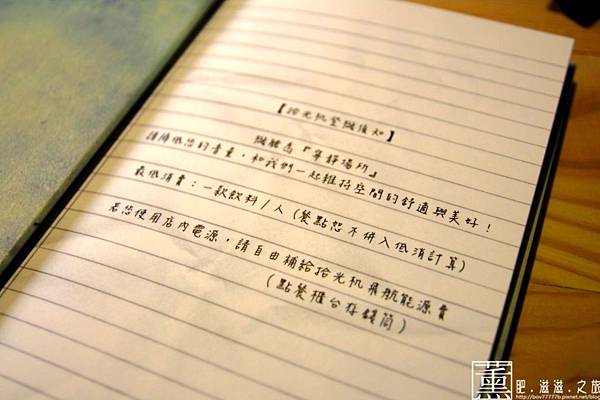 【拾光机登機須知】
機艙為『寧靜場所』
請降低您的音量，和我們一起維持空間的舒適與美好！
最低消費：一款飲料/人(餐點恕不併入低消計算)
若您使用店內電源，請自由補給拾光机飛航能源費
(點餐櫃台存錢筒)
薰 肥.滋滋.之旅
http://bov77777b.pixnet.net/blog